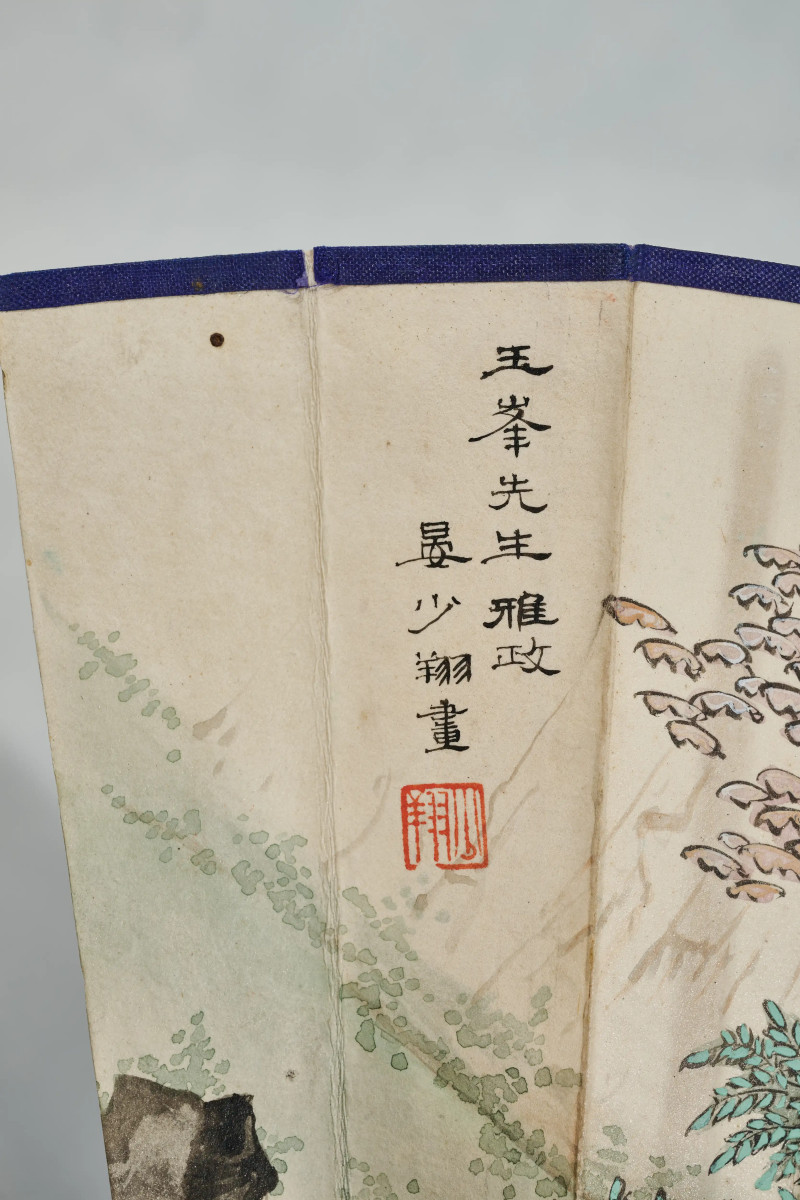 玉峯先生雅政
晏少翔畫
少翔